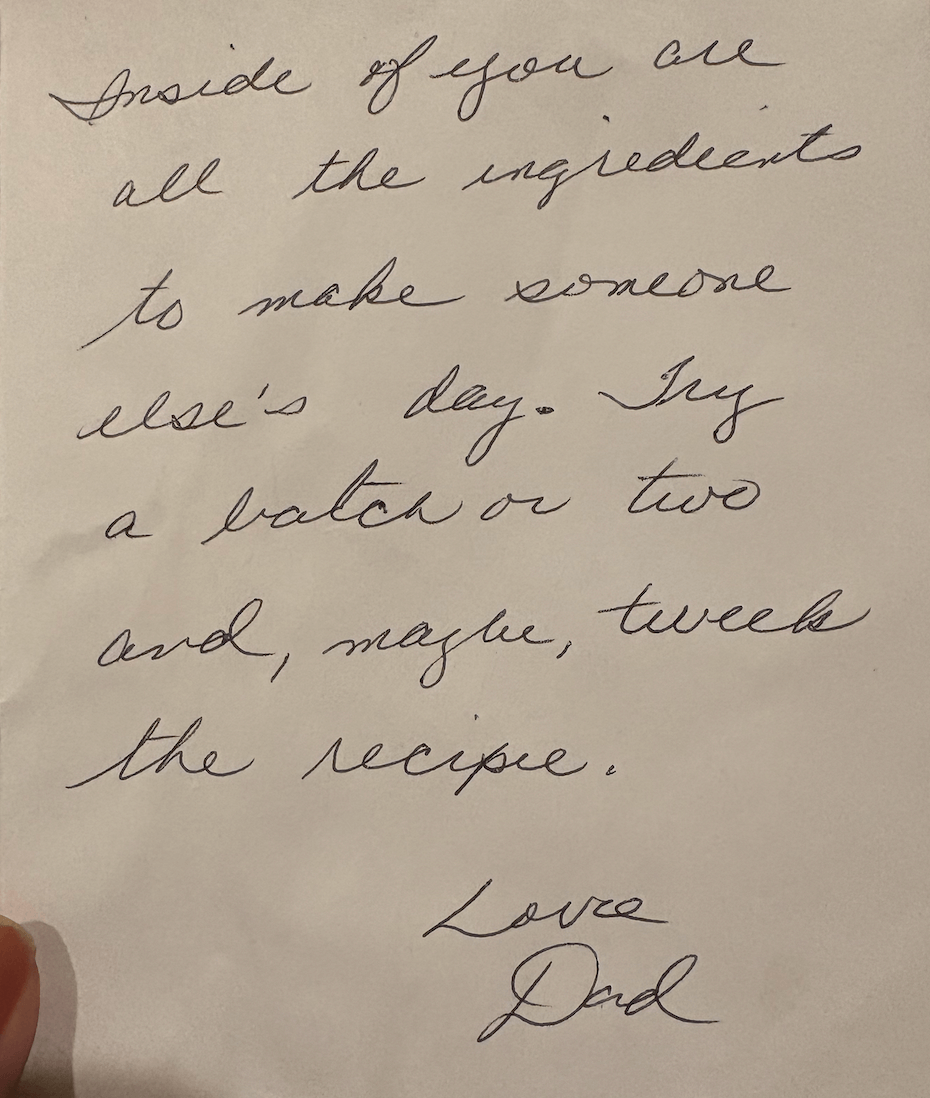 Inside of you are
all the ingredients
to make someone
else's day. Try
a batch or two
and, maybe, tweek
the recipie.
Love
Dad